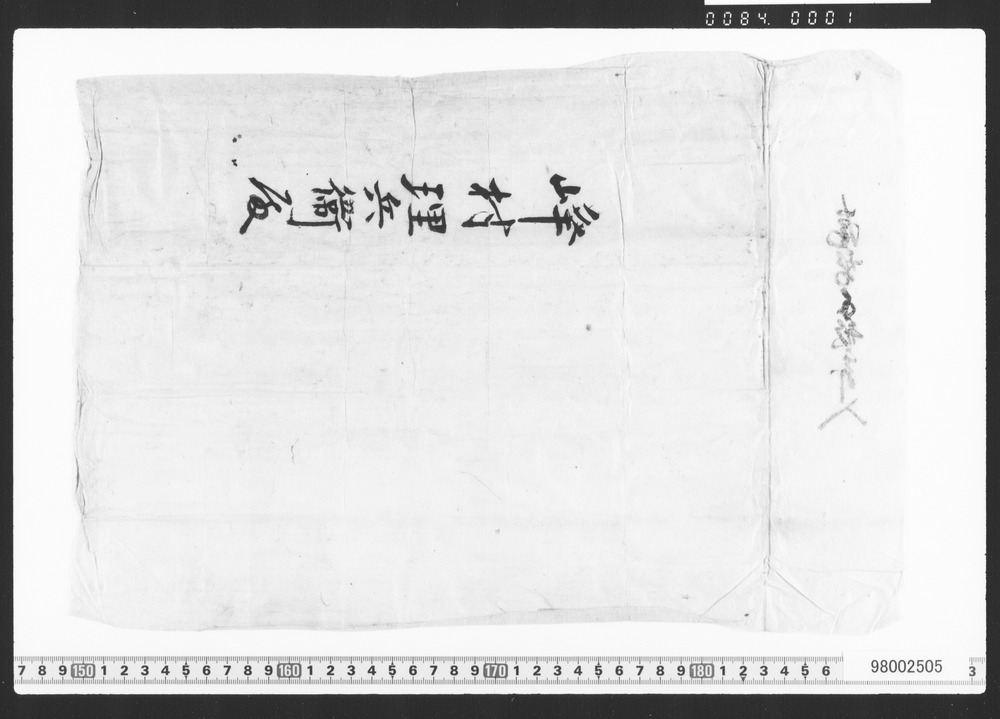 0084 0001
峰村理兵衛殿
7 8 9 150 1 2 3 4 5 6 7 8 9 160 1 2 3 4 5 6 7 8 9 170 1 2 3 4 5 6 7 8 9 180 1 2 3 4 5 6 98002505 3